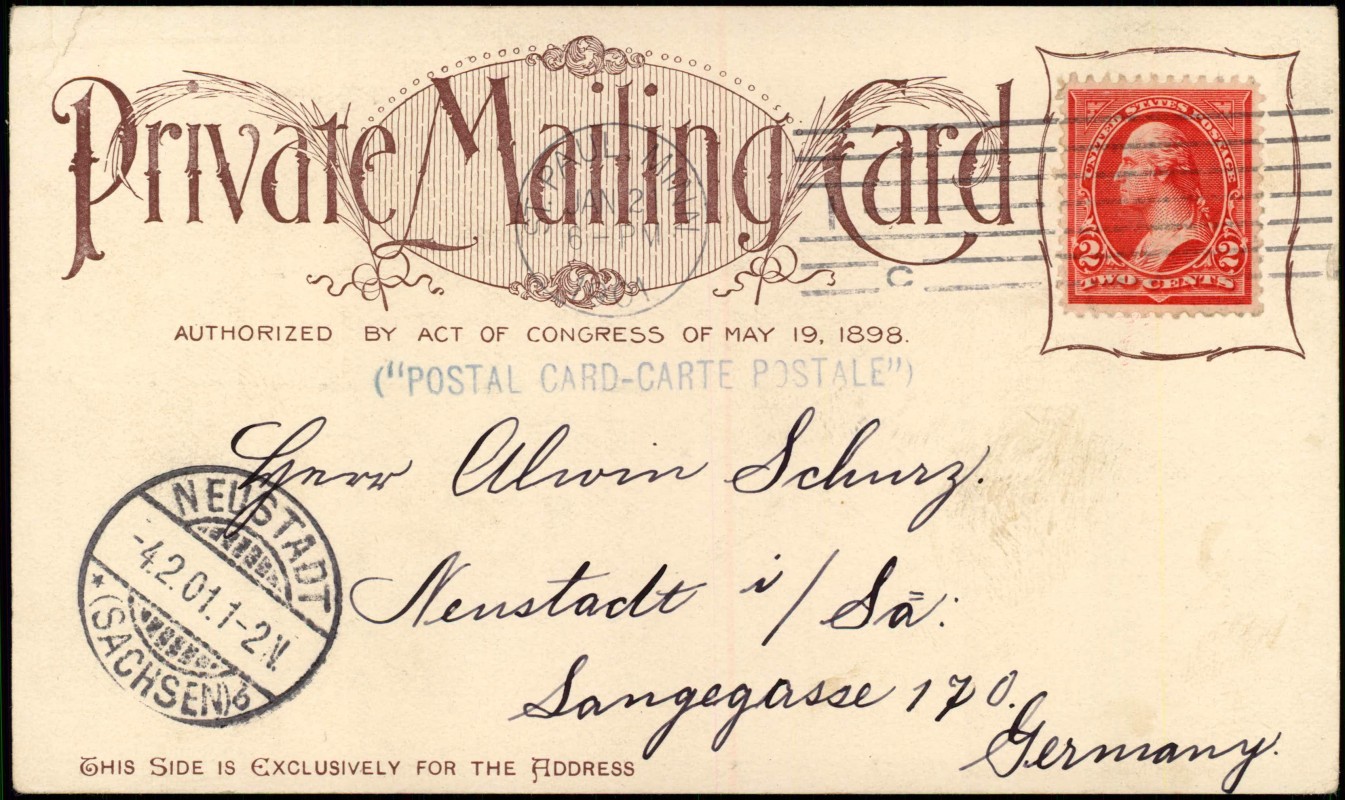 Private Mailing Card
UNITED STATES POSTAGE
2 2
TWO CENTS
ST. PAUL, MINN.
JAN 2
6-PM
C
AUTHORIZED BY ACT OF CONGRESS OF MAY 19, 1898.
("POSTAL CARD-CARTE POSTALE")
Herr Alwin Schurz.
Neustadt i/Sa:
Langegasse 170.
Germany.
NEUSTADT
-4.2.01.1-2N.
* (SACHSEN) b
THIS SIDE IS EXCLUSIVELY FOR THE ADDRESS